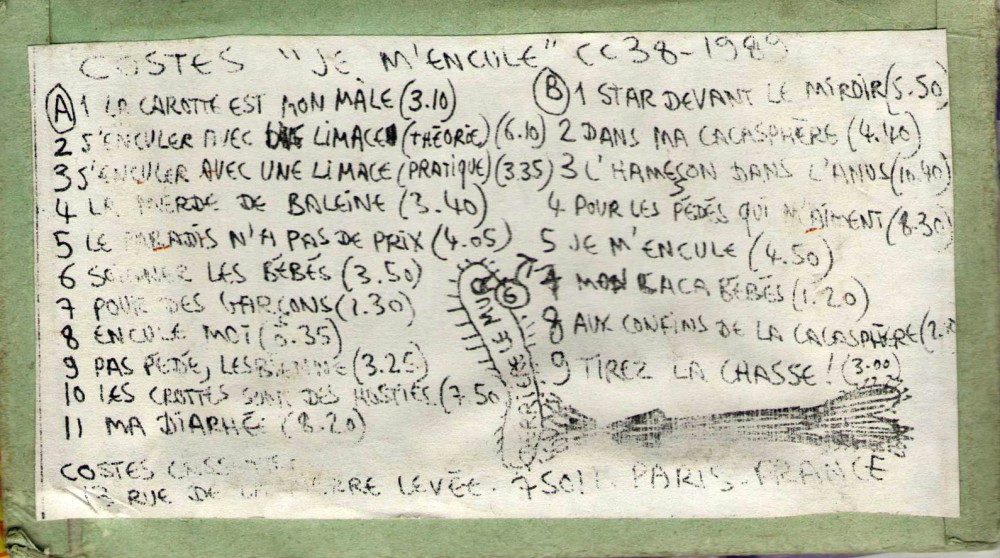 COSTES "JE M'ENCULE" CC38-1989
A 1 LA CAROTTE EST MON MÂLE (3.10)
2 S'ENCULER AVEC LIMACE (THÉORIE) (6.10)
3 S'ENCULER AVEC UNE LIMACE (PRATIQUE) (3.35)
4 LA MERDE DE BALEINE (3.40)
5 LE PARADIS N'A PAS DE PRIX (4.05)
6 LES BÉBÉS (3.50)
7 POUR DES GARÇONS
8 ENCULE MOI
9 PAS PÉDÉ, LESBIENNE (3.25)
10 LES CROTTES SONT DES HOSTIES (7.50)
11 MA DIARHÉ (8.20)
B 1 STAR DEVANT LE MIROIR (5.50)
2 DANS MA CACASPHÈRE (4.40)
3 L'HAMEÇON DANS L'ANUS (10.40)
4 POUR LES PÉDÉS QUI M'AIMENT (8.30)
5 JE M'ENCULE (4.50)
6
7 MON CACA BÉBÉS (1.20)
8 AUX CONFINS DE LA CACASPHÈRE
9 TIREZ LA CHASSE! (3.00)
COSTES
RUE DE LA PIERRE LEVÉE. 75011 PARIS-FRANCE